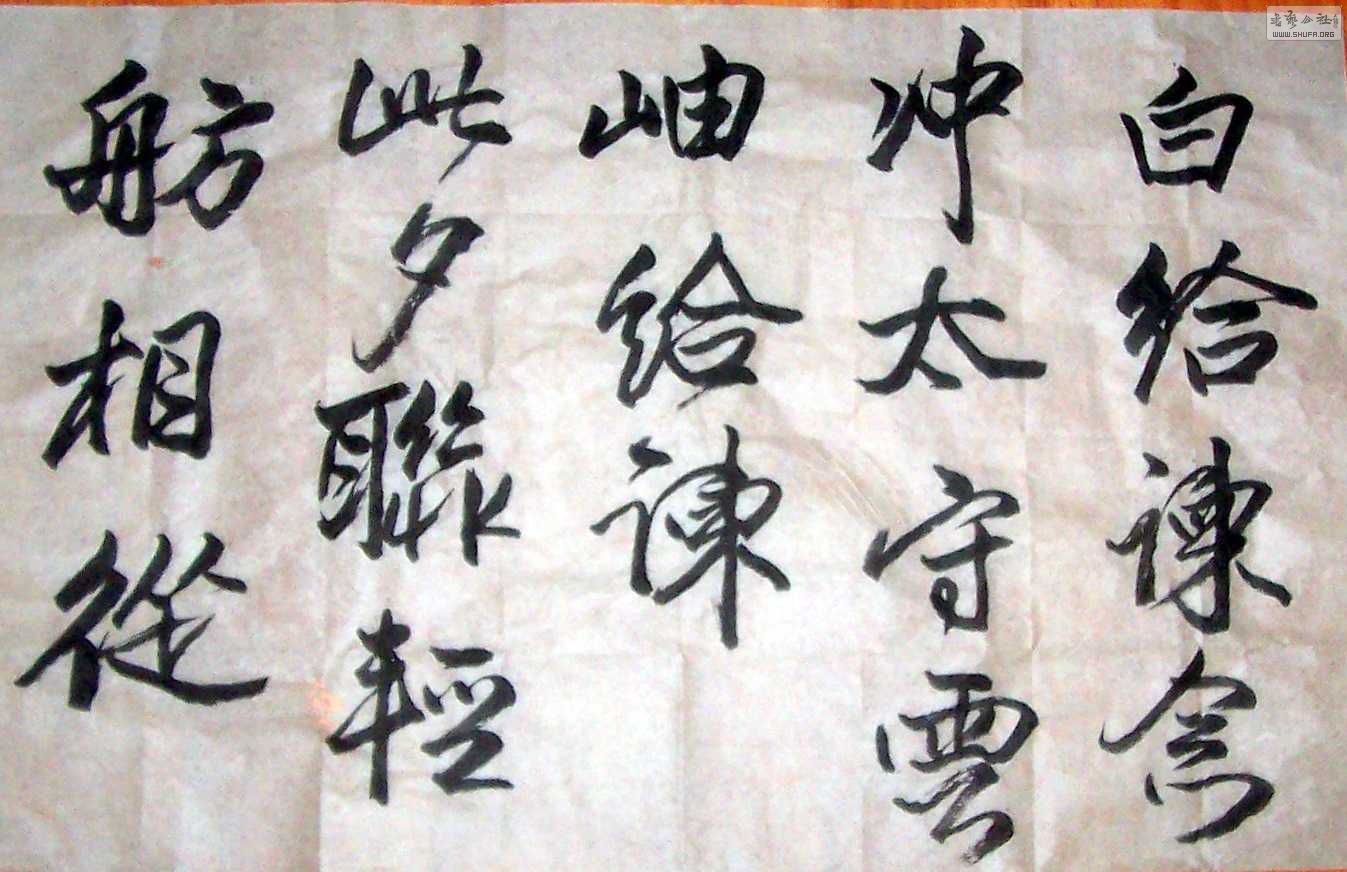 白給諫念
冲太守雲
岫給諫
此夕聯輕
舫相從
書藝公社
WWW.SHUFA.ORG